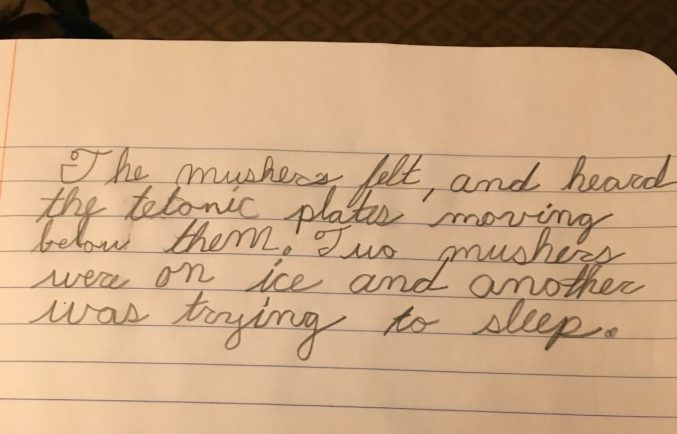 The mushers felt, and heard
the tetonic plates moving
below them. Two mushers
were on ice and another
was trying to sleep.